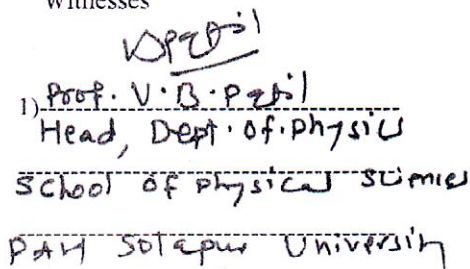 Witnesses
VBPatil
1) Prof. V. B. Patil
Head, Dept. of. Physics
School of Physical Sciences
PAH Solapur University